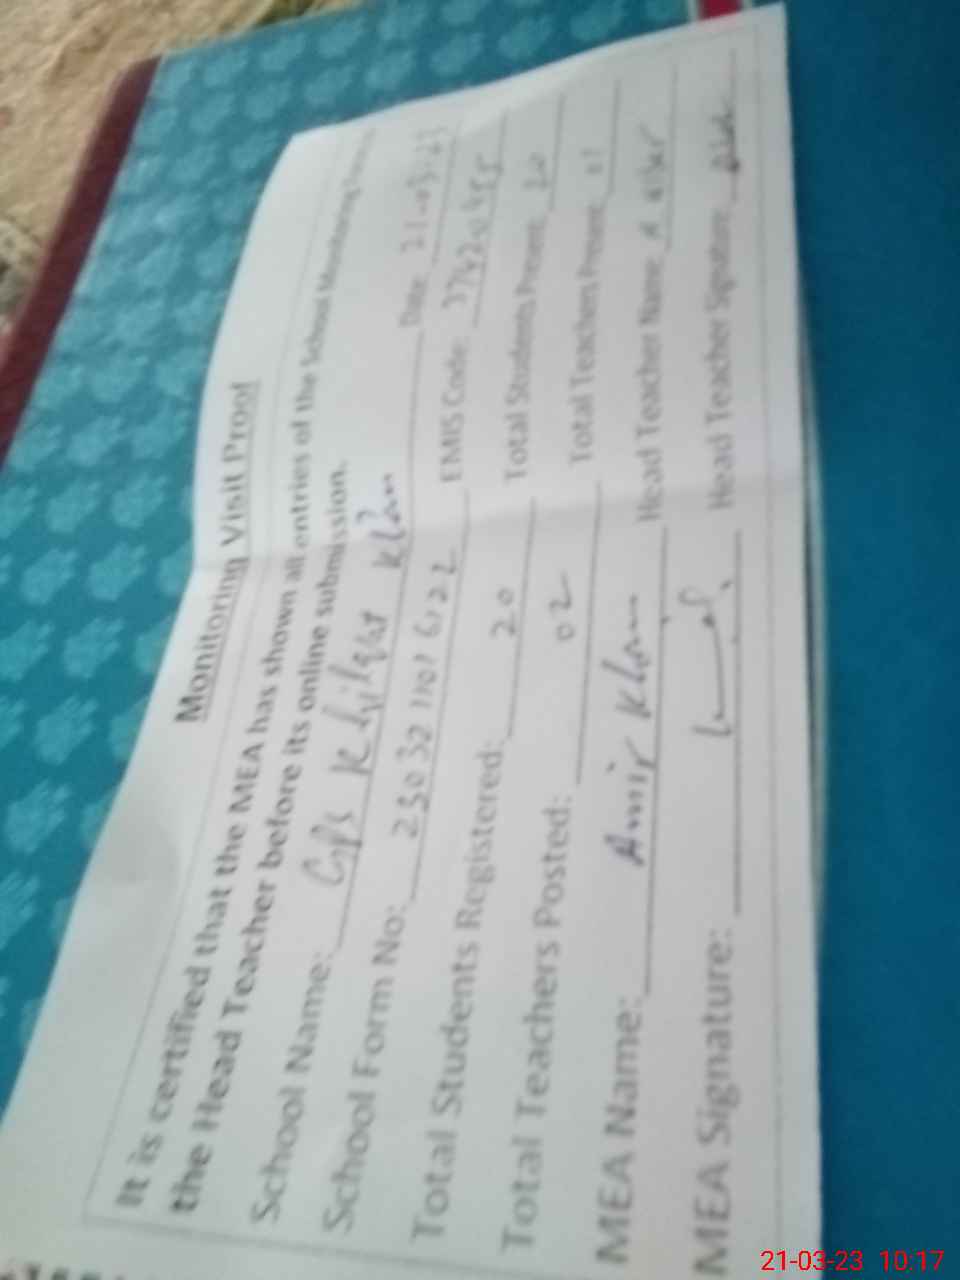 Monitoring Visit Proof
It is certified that the MEA has shown all entries of the School Monitoring
the Head Teacher before its online submission.
School Name: GPS Khan Date: 21-03-23
School Form No: EMIS Code:
Total Students Registered: 20 Total Students Present: 20
Total Teachers Posted: 02 Total Teachers Present: 01
MEA Name: Amir Khan Head Teacher Name:
MEA Signature: Head Teacher Signature:
21-03-23 10:17